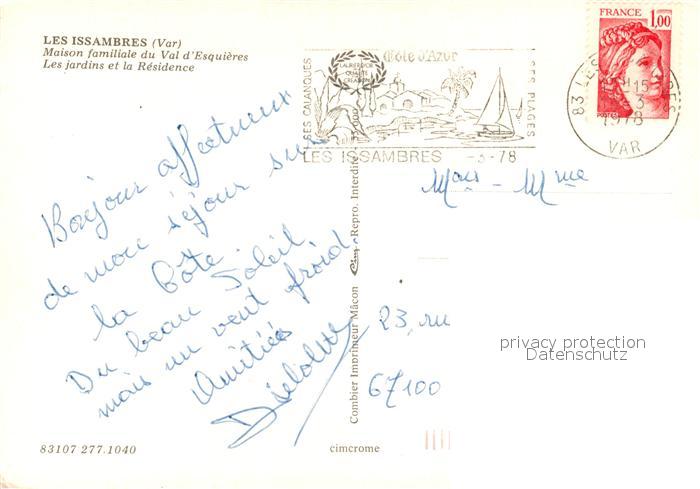 LES ISSAMBRES (Var)
Maison familiale du Val d'Esquières
Les jardins et la Résidence
SES CALANQUES
LAURIER D'OR
Côte d'Azur
SES PLAGES
LES ISSAMBRES -3-78
FRANCE
1,00
POSTES
83 LES
3
1978
VAR
Bonjour affectueux
de mon séjour sur
la Côte.
Du beau soleil
mais un vent froid.
Amitiés
Mme
23, ru
67100
Combier Imprimeur Mâcon Cim Repro. Interdite
privacy protection
Datenschutz
83107 277.1040
cimcrome